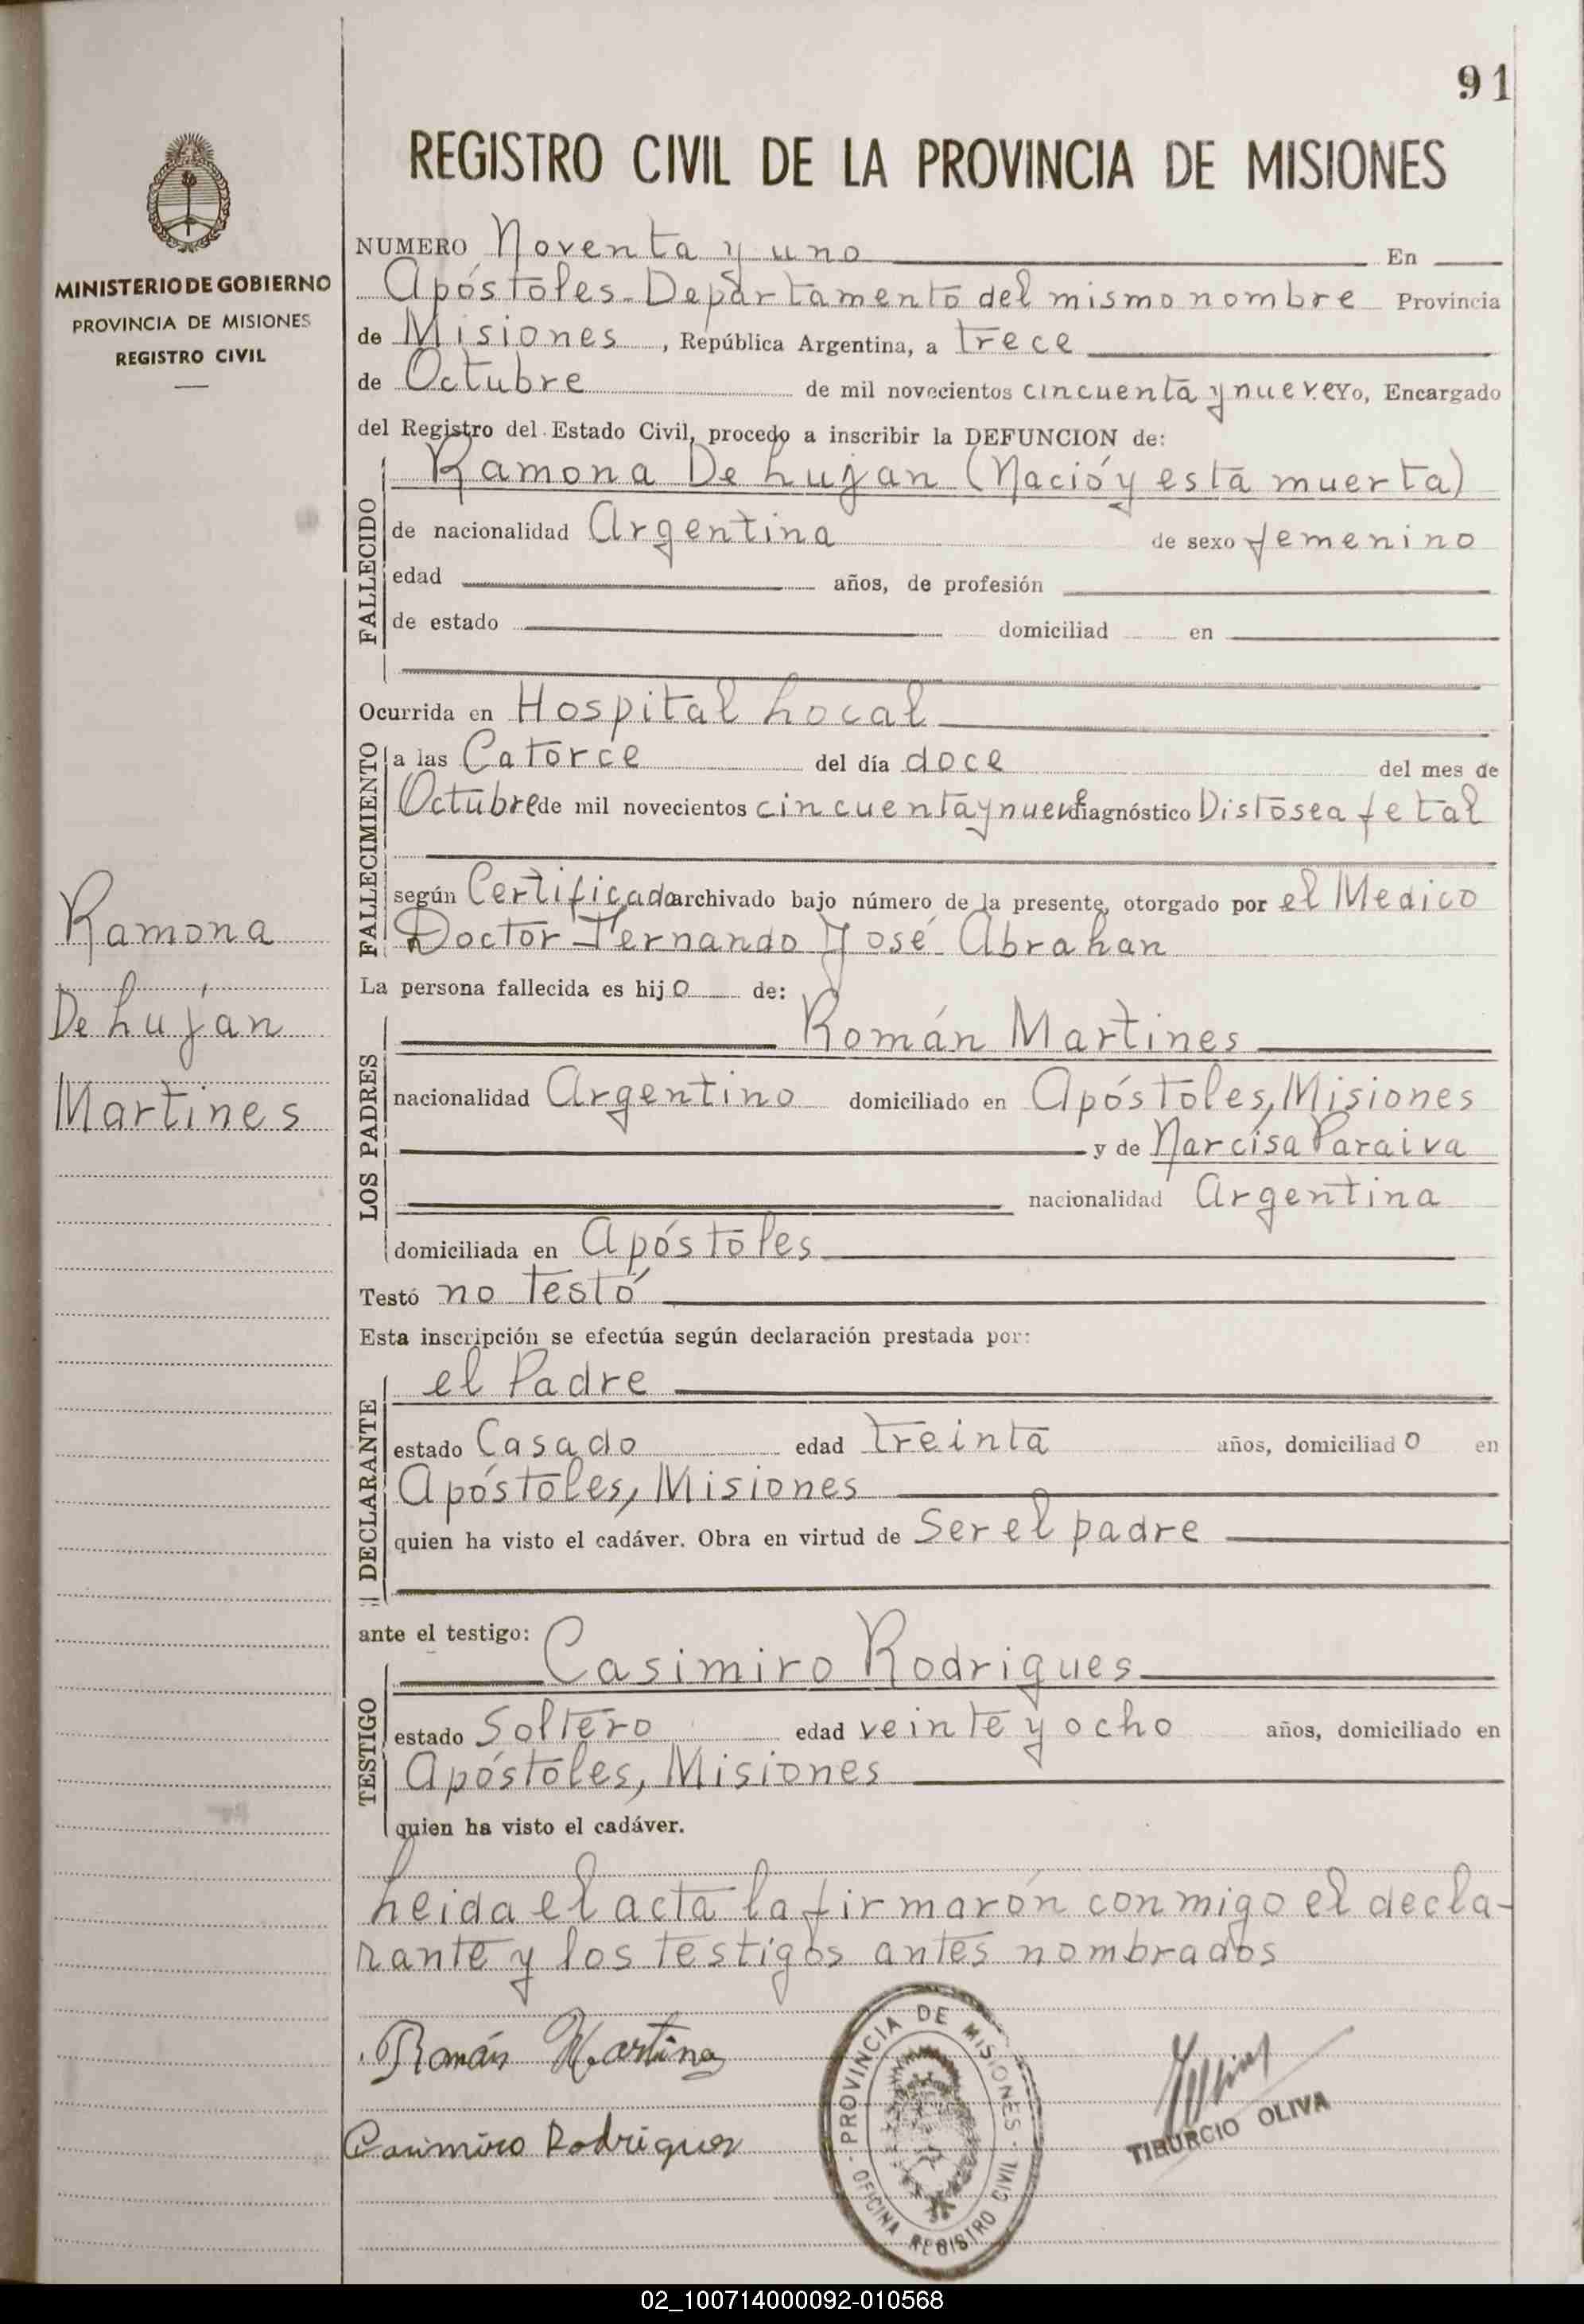 91
REGISTRO CIVIL DE LA PROVINCIA DE MISIONES
MINISTERIO DE GOBIERNO
PROVINCIA DE MISIONES
REGISTRO CIVIL
NUMERO Noventa y uno En
Apóstoles. Departamento del mismo nombre Provincia
de Misiones, República Argentina, a trece
de Octubre de mil novecientos cincuenta y nueve Yo, Encargado
del Registro del Estado Civil, procedo a inscribir la DEFUNCION de:
Ramona De Luján (Nació y está muerta)
FALLECIDO
de nacionalidad Argentina de sexo femenino
edad años, de profesión
de estado domiciliad en
Ocurrida en Hospital Local
FALLECIMIENTO
a las Catorce del día doce del mes de
Octubre de mil novecientos cincuenta y nueve diagnóstico Distosea fetal
según Certificado archivado bajo número de la presente, otorgado por el Medico
Doctor Fernando José Abrahan
La persona fallecida es hijo de:
Ramona
De Luján
Martines
LOS PADRES
Román Martines
nacionalidad Argentino domiciliado en Apóstoles, Misiones
y de Narcisa Paraiva
nacionalidad Argentina
domiciliada en Apóstoles
Testó no testó
Esta inscripción se efectúa según declaración prestada por:
DECLARANTE
el Padre
estado Casado edad treinta años, domiciliado en
Apóstoles, Misiones
quien ha visto el cadáver. Obra en virtud de Ser el padre
ante el testigo:
TESTIGO
Casimiro Rodrigues
estado Soltero edad veinte y ocho años, domiciliado en
Apóstoles, Misiones
quien ha visto el cadáver.
Leida el acta la firmarón conmigo el decla-
rante y los testigos antes nombrados
Román Martines
Casimiro Rodrigues
PROVINCIA DE MISIONES
OFICINA REGISTRO CIVIL
TIBURCIO OLIVA
02_100714000092-010568